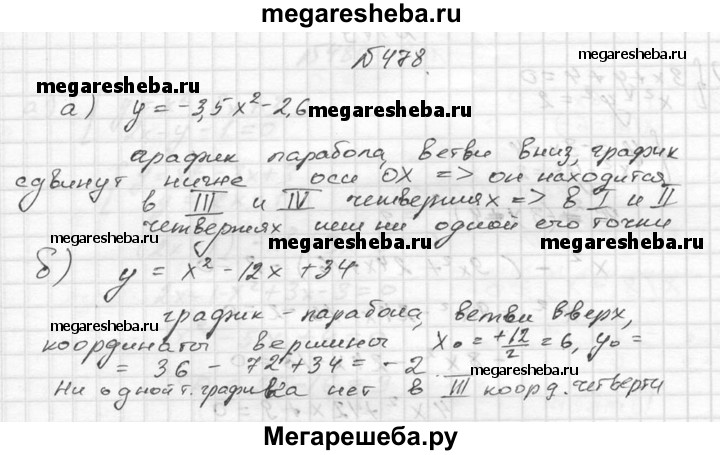 megaresheba.ru
№478.
megaresheba.ru
а) y = -3,5x² - 2,6 megaresheba.ru
график парабола, ветви вниз, график
сдвинут ниже оси OX => он находится
в III и IV четвертях => в I и II
четвертях нет ни одной его точки
megaresheba.ru megaresheba.ru
б) y = x² - 12x + 34
график - парабола, ветви вверх,
megaresheba.ru
координаты вершины x₀ = +12/2 = 6, y₀ =
= 36 - 72 + 34 = -2 megaresheba.ru
Ни одной т. графика нет в III коорд. четверти
Мегарешеба.ру